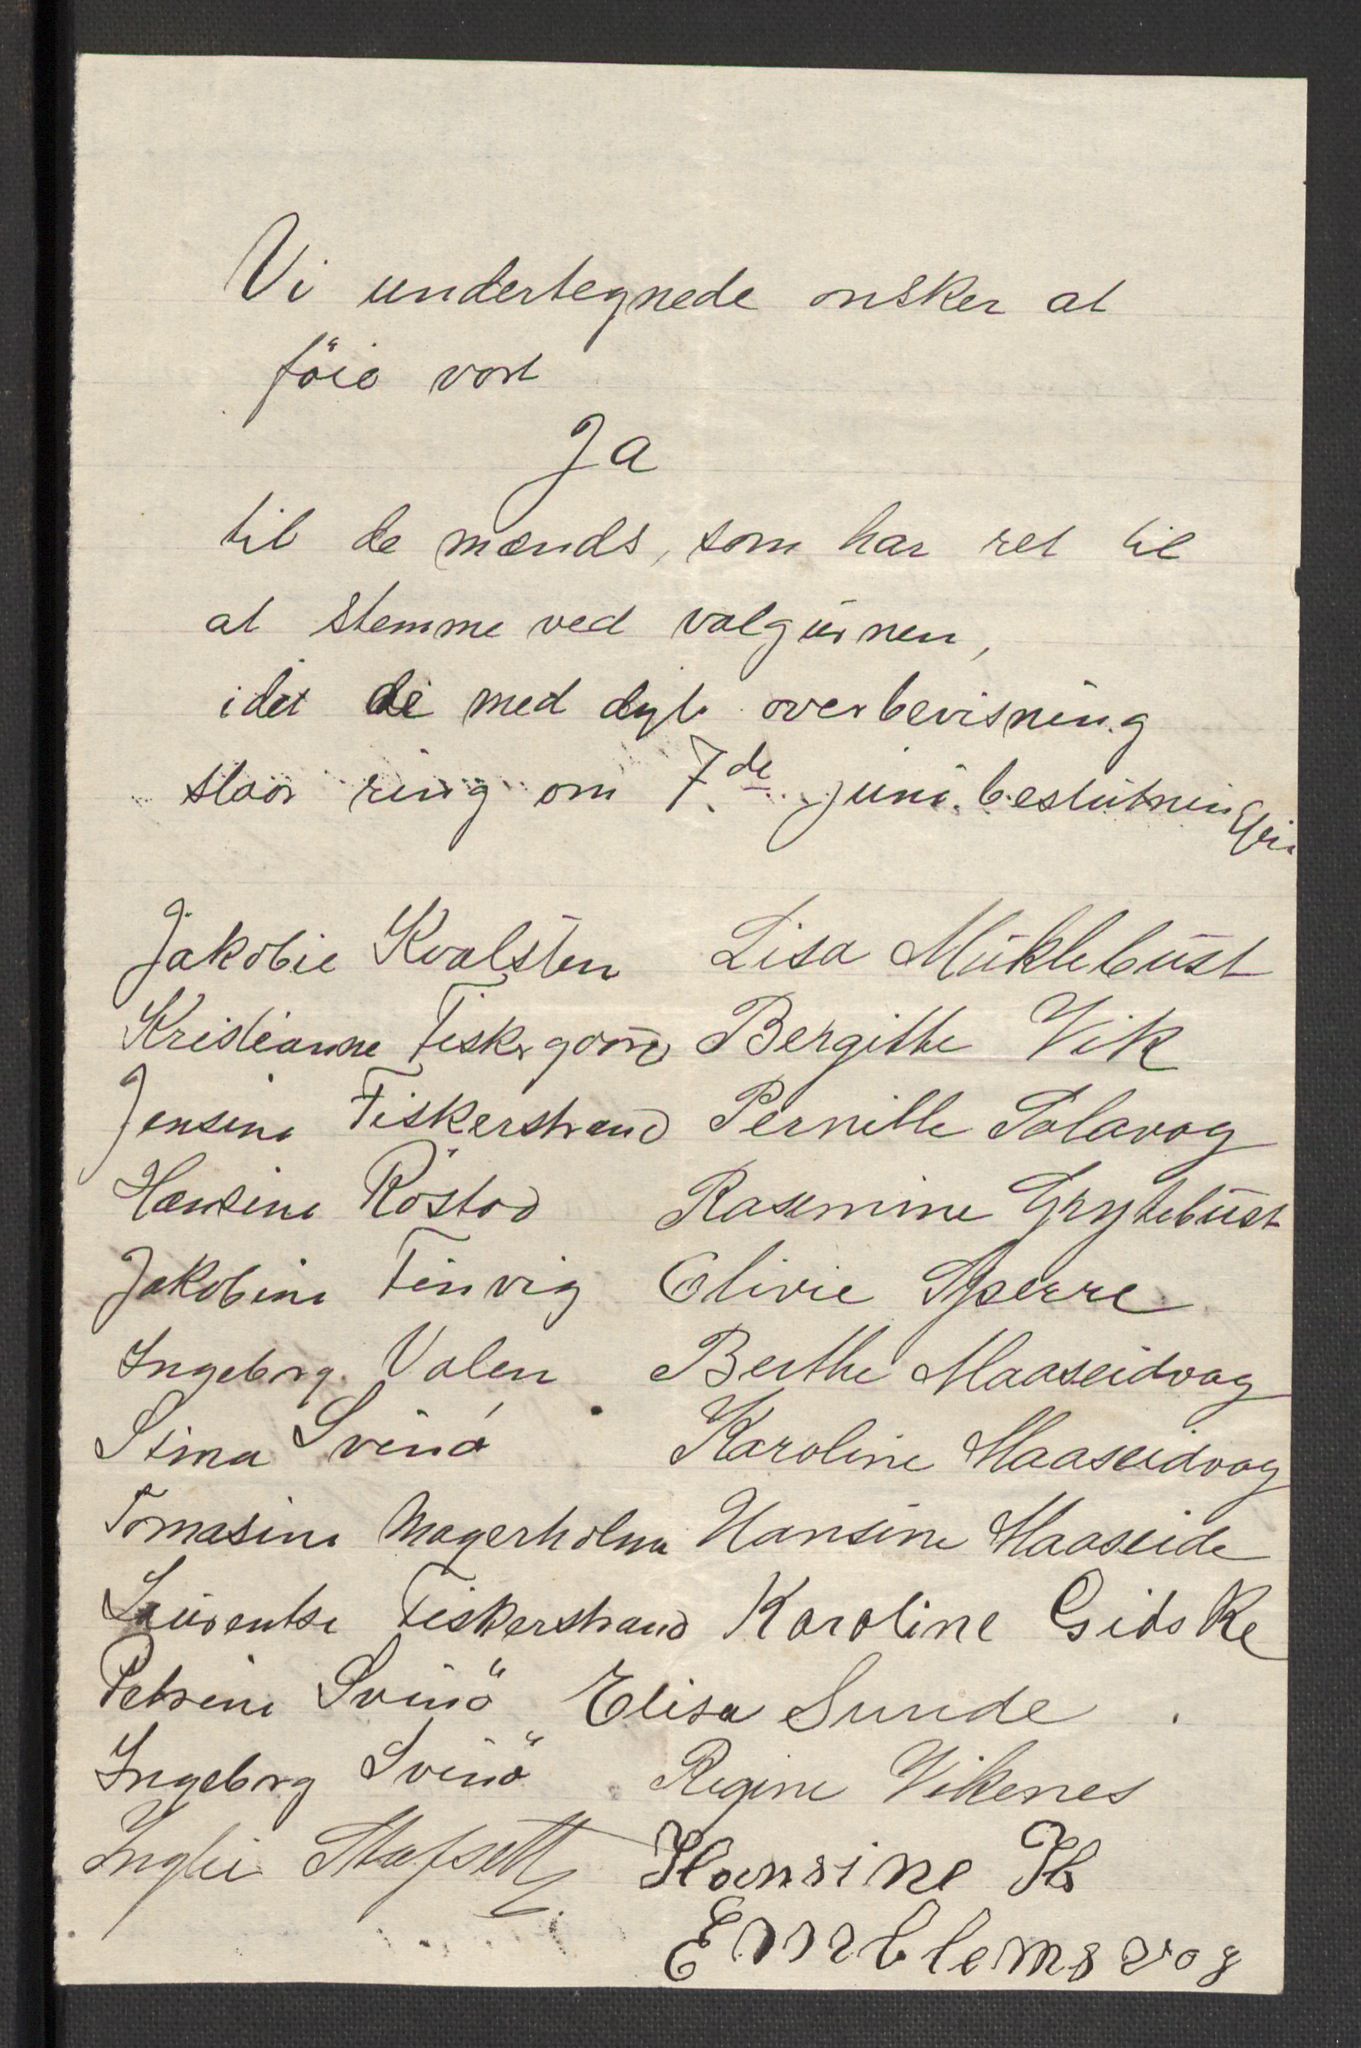 Vi undertegnede onsker at
föie vort
Ja
til de mænds, som har ret til
at stemme ved valgürnen,
idet de med dyb overbevisning
staar ring om 7de juni beslütning
Jakobie Kvalsten
Kristianne Fiskergaard
Jensine Fiskerstrand
Hansine Röstad
Jakobine Finvig
Ingeborg Valen
Stina Svinö
Tomasine Magerholm
Laürentse Fiskerstrand
Petrine Svinö
Ingeborg Svinö
Stafsett
Lisa Müklebüst
Bergithe Vik
Pernille Solavag
Rasmine Grytebüst
Olivie Sperre
Berthe Maaseidvag
Karoline Maaseidvag
Hansine Maaseide
Karoline Gidske
Elisa Sunde
Regine Vikenes
Hansine H
Emblemsvag